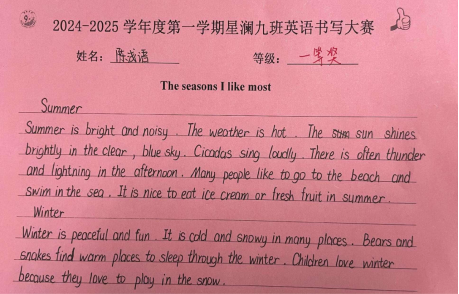 2024-2025 学年度第一学期星澜九班英语书写大赛
姓名：陈浅语 等级：一等奖
The seasons I like most
Summer
Summer is bright and noisy . The weather is hot . The sun shines
brightly in the clear , blue sky . Cicadas sing loudly . There is often thunder
and lightning in the afternoon . Many people like to go to the beach and
swim in the sea . It is nice to eat ice cream or fresh fruit in summer .
Winter
Winter is peaceful and fun . It is cold and snowy in many places . Bears and
snakes find warm places to sleep through the winter . Children love winter
because they love to play in the snow .